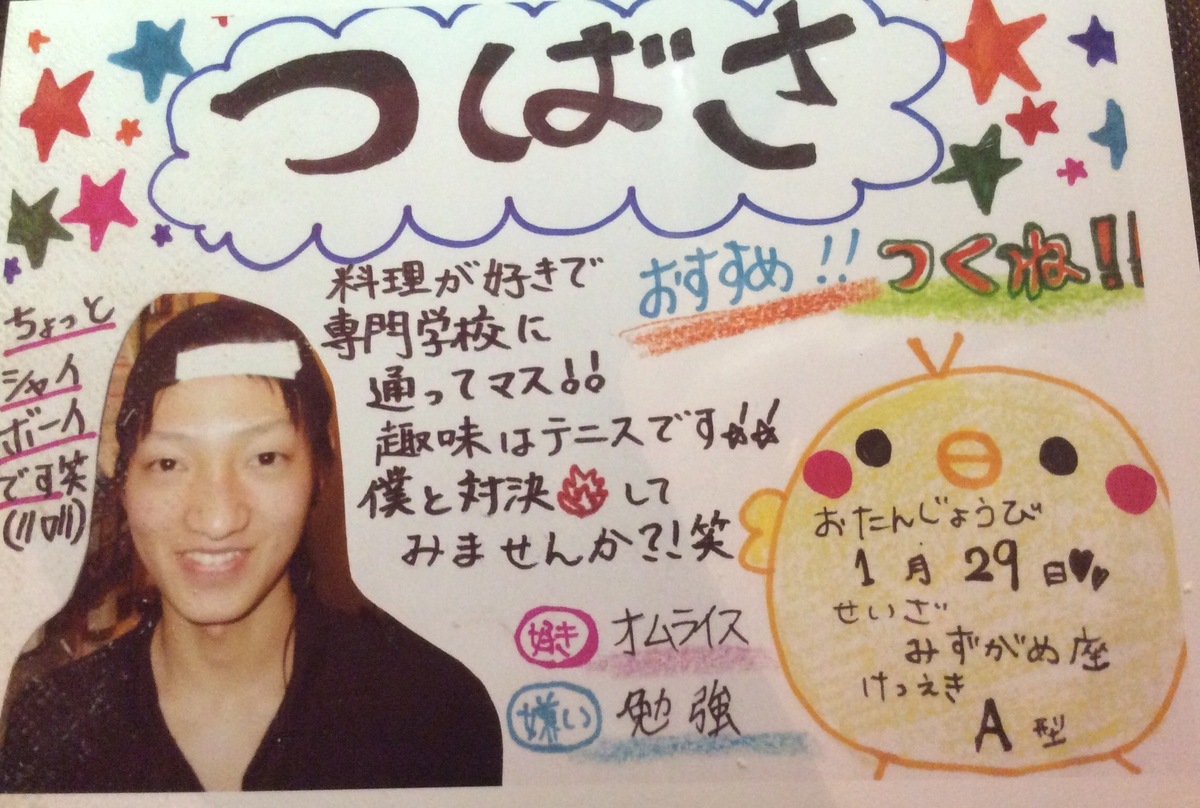 つばさ
おすすめ!! つくね!!
料理が好きで
専門学校に
通ってマス!!
趣味はテニスです☆☆
僕と対決して
みませんか?!笑
ちょっと
シャイ
ボーイ
です笑
好き オムライス
嫌い 勉強
おたんじょうび
1月29日♥♥
せいざ
みずがめ座
けつえき
A型